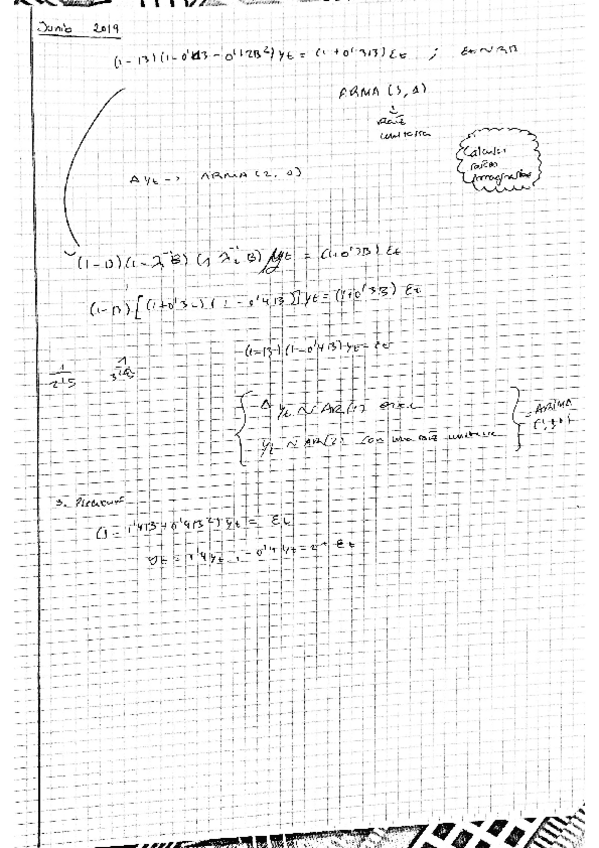 Junio 2019
(1-B)(1-0'1B-0'12B²) yt = (1+0'3B) εt ;
ARMA (3,1)
raíz
unitaria
Calcular
raíces
imaginarias
Δyt → ARMA (2,
(1-B)(1-λ⁻¹B)(1 λ₂⁻¹B) yt = (1+0'3B) εt
(1-B)[(1+0'3B)(1-0'4B)] yt = (1+0'3B) εt
(1-B)(1-0'4B) yt = εt
1/2'5
Δyt ~ AR(1)
yt ~ AR(2) con una raíz unitaria
= ARIMA (1,1,0)
(1-1'4B+0'4B²) yt = εt
yt = 1'4yt-1 -0'4yt-2 + εt